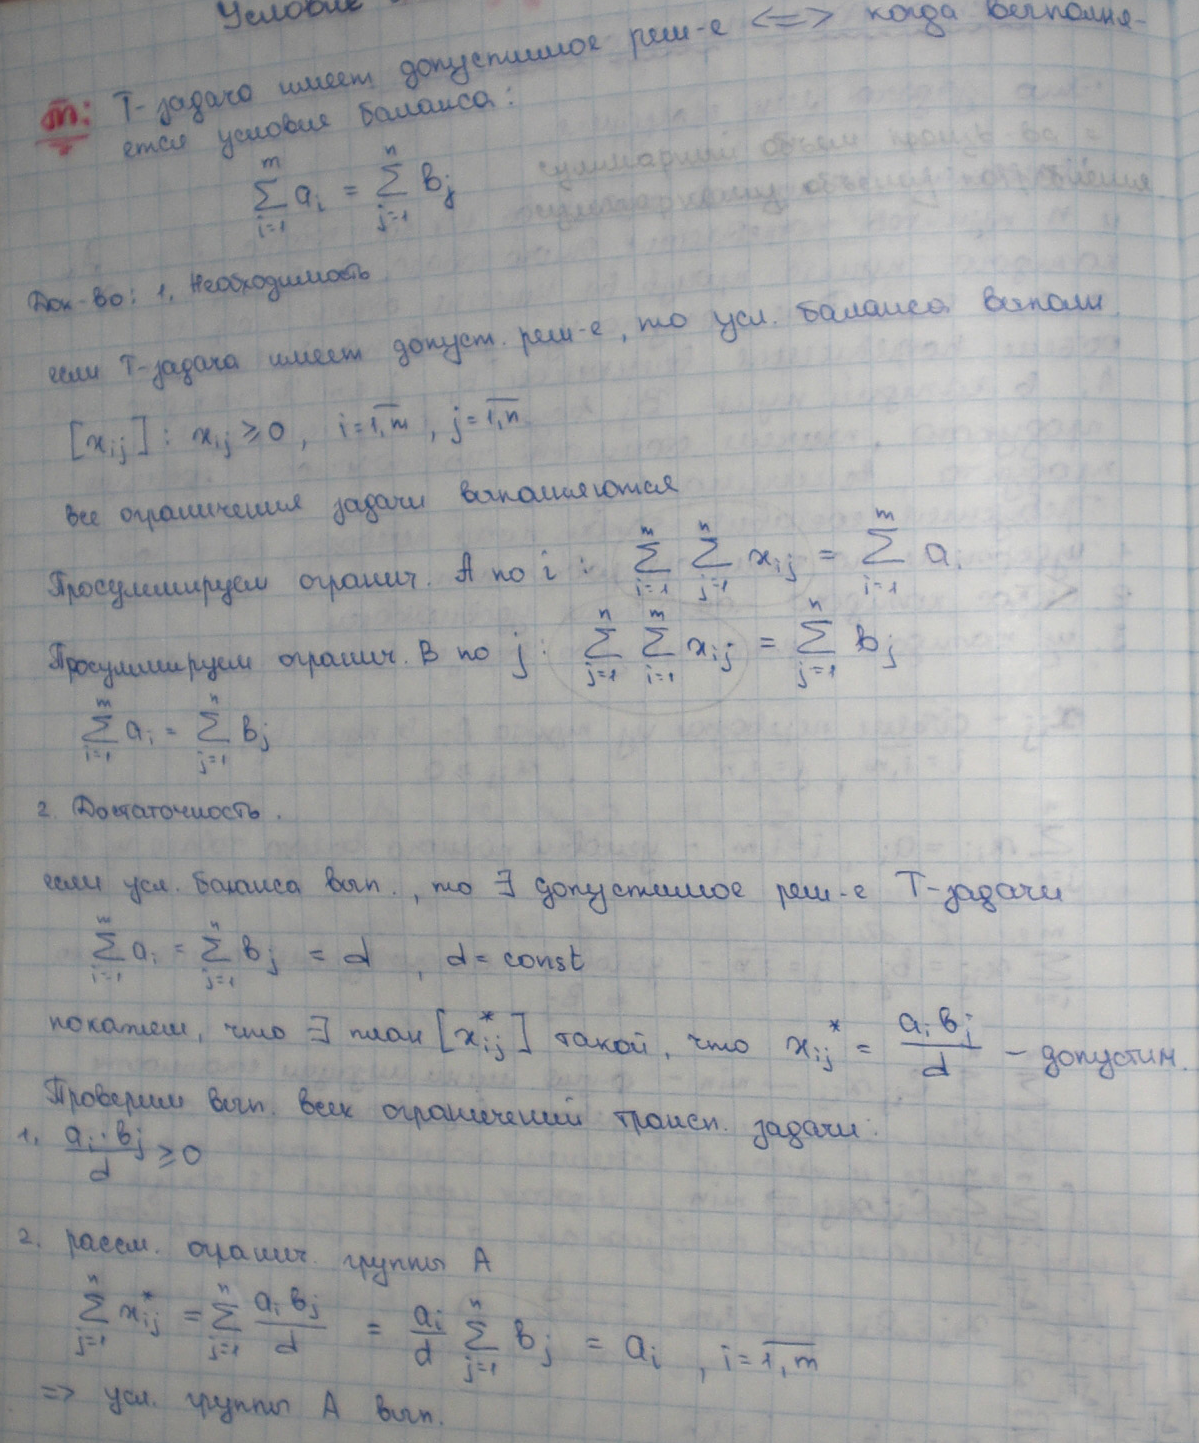 Условие
Т: Т-задача имеет допустимое реш-е <=> когда выполня-
ется условие баланса:
суммарный объем произв-ва =
суммарному объему потребления
\sum_{i=1}^{m} a_i = \sum_{j=1}^{n} b_j
Док-во: 1. Необходимость
если Т-задача имеет допуст. реш-е, то усл. баланса выполн.
[x_{ij}]: x_{ij} ≥ 0, i = \overline{1,m}, j = \overline{1,n}
все ограничения задачи выполняются
Просуммируем огранич. А по i: \sum_{i=1}^{m} \sum_{j=1}^{n} x_{ij} = \sum_{i=1}^{m} a_i
Просуммируем огранич. В по j: \sum_{j=1}^{n} \sum_{i=1}^{m} x_{ij} = \sum_{j=1}^{n} b_j
\sum_{i=1}^{m} a_i = \sum_{j=1}^{n} b_j
2. Достаточность.
если усл. баланса вып., то ∃ допустимое реш-е Т-задачи
\sum_{i=1}^{m} a_i = \sum_{j=1}^{n} b_j = d, d = const
покажем, что ∃ план [x_{ij}^*] такой, что x_{ij}^* = \frac{a_i b_j}{d} - допустим.
Проверим вып. всех ограничений трансп. задачи:
1. \frac{a_i \cdot b_j}{d} ≥ 0
2. рассм. огранич. группы А
\sum_{j=1}^{n} x_{ij}^* = \sum_{j=1}^{n} \frac{a_i b_j}{d} = \frac{a_i}{d} \sum_{j=1}^{n} b_j = a_i, i = \overline{1,m}
=> усл. группы А вып.